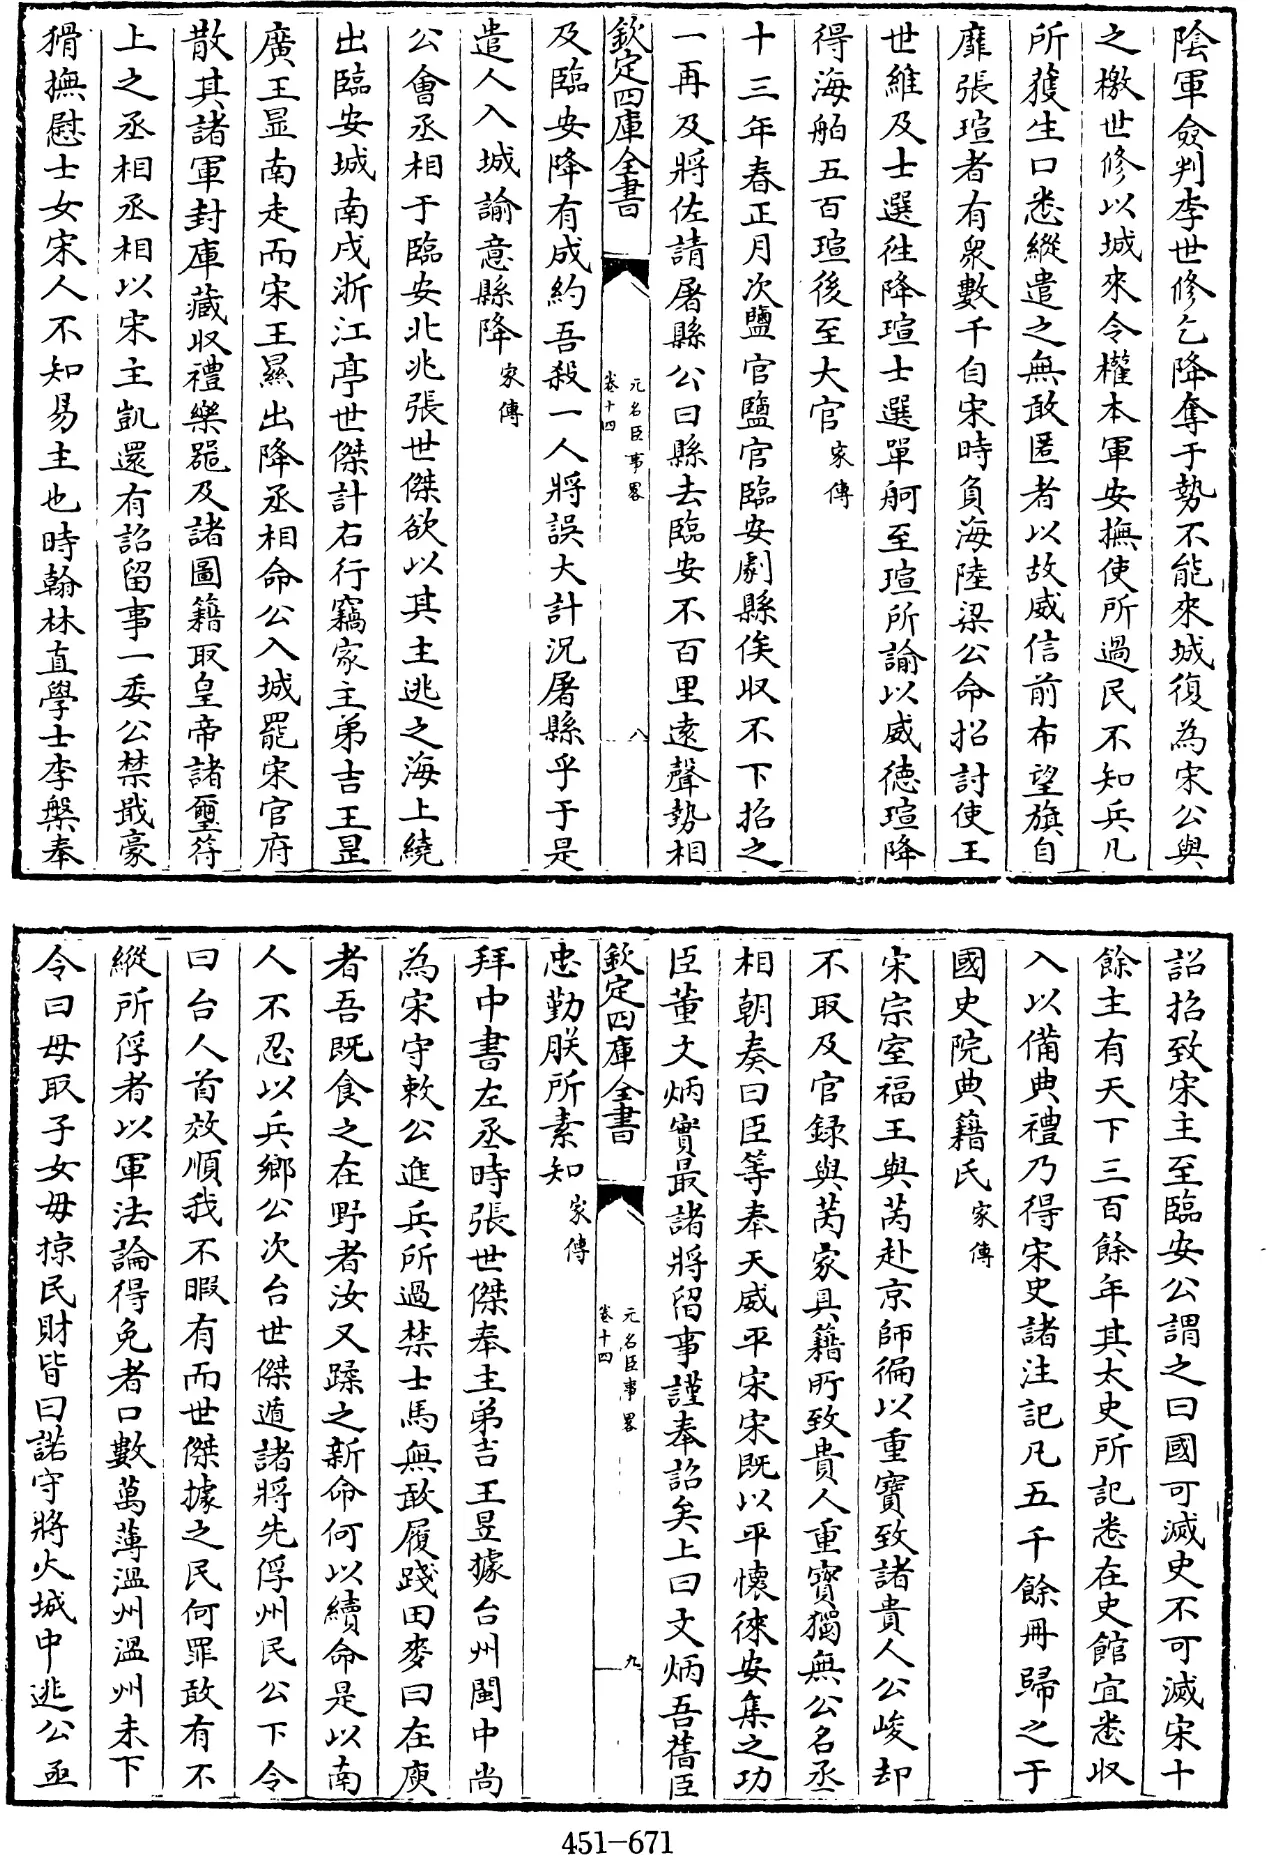 陰軍僉判李世修乞降奪于勢不能來城復為宋公與
之檄世修以城來令權本軍安撫使所過民不知兵凡
所獲生口悉縱遣之無敢匿者以故威信前布望旗自
靡張瑄者有衆數千自宋時負海陸梁公命招討使王
世維及士選徃降瑄士選單舸至瑄所諭以威德瑄降
得海舶五百瑄後至大官家傳
十三年春正月次鹽官鹽官臨安劇縣俟収不下招之
一再及將佐請屠縣公曰縣去臨安不百里逺聲勢相
欽定四庫全書
元名臣事畧
卷十四
八
及臨安降有成約吾殺一人將誤大計況屠縣乎于是
遣人入城諭意縣降家傳
公會丞相于臨安北兆張世傑欲以其主逃之海上繞
出臨安城南戍浙江亭世傑計右行竊家主弟吉王昰
廣王昺南走而宋王㬎出降丞相命公入城罷宋官府
散其諸軍封庫藏収禮樂器及諸圖籍取皇帝諸璽符
上之丞相丞相以宋主凱還有詔留事一委公禁戢豪
猾撫慰士女宋人不知易主也時翰林直學士李槃奉
詔招致宋主至臨安公謂之曰國可滅史不可滅宋十
餘主有天下三百餘年其太史所記悉在史館宜悉収
入以備典禮乃得宋史諸注記凡五千餘冊歸之于
國史院典籍氏家傳
宋宗室福王與芮赴京師徧以重寶致諸貴人公峻却
不取及官録與芮家具籍所致貴人重寶獨無公名丞
相朝奏曰臣等奉天威平宋宋既以平懷徠安集之功
臣董文炳實最諸將留事謹奉詔矣上曰文炳吾舊臣
欽定四庫全書
元名臣事畧
卷十四
九
忠勤朕所素知家傳
拜中書左丞時張世傑奉主弟吉王昰據台州閩中尚
為宋守敕公進兵所過禁士馬無敢履踐田麥曰在庾
者吾既食之在野者汝又蹂之新命何以續命是以南
人不忍以兵鄉公次台世傑遁諸將先俘州民公下令
曰台人首效順我不暇有而世傑據之民何罪敢有不
縱所俘者以軍法論得免者口數萬薄溫州溫州未下
令曰毋取子女毋掠民財皆曰諾守將火城中逃公亟
451-671